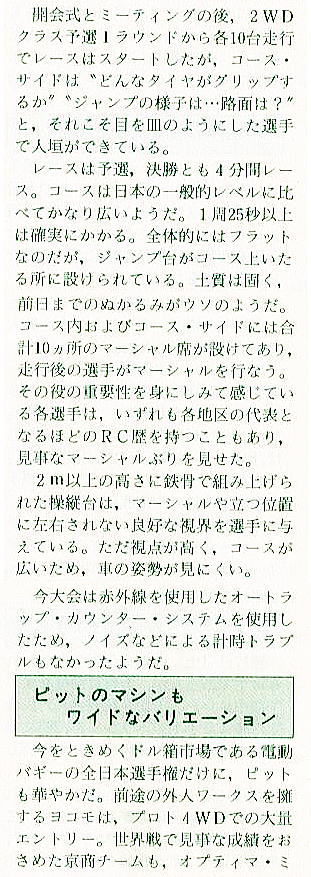 開会式とミーティングの後，２ＷＤ
クラス予選１ラウンドから各10台走行
でレースはスタートしたが，コース・
サイドは〝どんなタイヤがグリップす
るか〟〝ジャンプの様子は…路面は？〟
と，それこそ目を皿のようにした選手
で人垣ができている。
レースは予選，決勝とも４分間レー
ス。コースは日本の一般的レベルに比
べてかなり広いようだ。１周25秒以上
は確実にかかる。全体的にはフラット
なのだが，ジャンプ台がコース上いた
る所に設けられている。土質は固く，
前日までのぬかるみがウソのようだ。
コース内およびコース・サイドには合
計10ヵ所のマーシャル席が設けてあり，
走行後の選手がマーシャルを行なう。
その役の重要性を身にしみて感じてい
る各選手は，いずれも各地区の代表と
なるほどのＲＣ歴を持つこともあり，
見事なマーシャルぶりを見せた。
２ｍ以上の高さに鉄骨で組み上げら
れた操縦台は，マーシャルや立つ位置
に左右されない良好な視界を選手に与
えている。ただ視点が高く，コースが
広いため，車の姿勢が見にくい。
今大会は赤外線を使用したオートラ
ップ・カウンター・システムを使用し
たため，ノイズなどによる計時トラブ
ルもなかったようだ。
ピットのマシンも
ワイドなバリエーション
今をときめくドル箱市場である電動
バギーの全日本選手権だけに，ピット
も華やかだ。前途の外人ワークスを擁
するヨコモは，プロト４ＷＤでの大量
エントリー。世界戦で見事な成績をお
さめた京商チームも，オプティマ・ミ